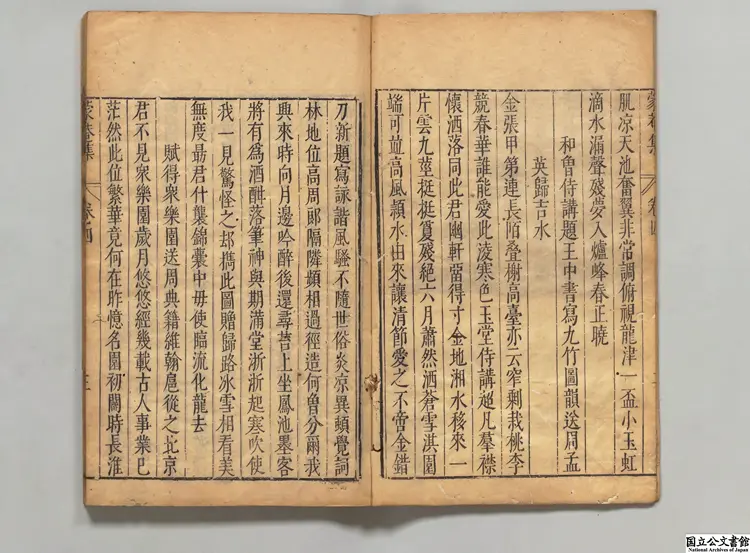 肌凉天池奮翼非常調俯視龍津一盃小玉虹
滴水漏聲殘夢入爐峰春正曉
和魯侍講題王中書寫九竹圖韻送周孟
英歸吉水
金張甲第連長陌疊榭高臺亦云窄剩栽桃李
競春華誰能愛此淩寒色玉堂侍講超凡羣襟
懷洒落同此君幽軒當得寸金地湘水移來一
片雲九莖挺挺篔殘絕六月蕭然洒蒼雪淇園
嶰可並高風潁水由來讓清節愛之不啻金錯
刀新題寫詠諧風騷不隨世俗炎凉異頻覺詞
林地位高周郎隔隣頻相過徑造何曾分爾我
興來時向月邊吟醉後還尋苔上坐鳳池墨客
將有為酒酣落筆神與期滿堂淅淅起寒吹使
我一見驚怪之却攜此圖贈歸路冰雪相看美
無度最君什襲錦囊中毋使臨流化龍去
賦得衆樂園送周典籍維翰扈從之北京
君不見衆樂園歲月悠悠經幾載古人事業已
茫然此位繁華竟何在昨憶名園初闢時長淮
蒙菴集
卷四
国立公文書館
National Archives of Japan